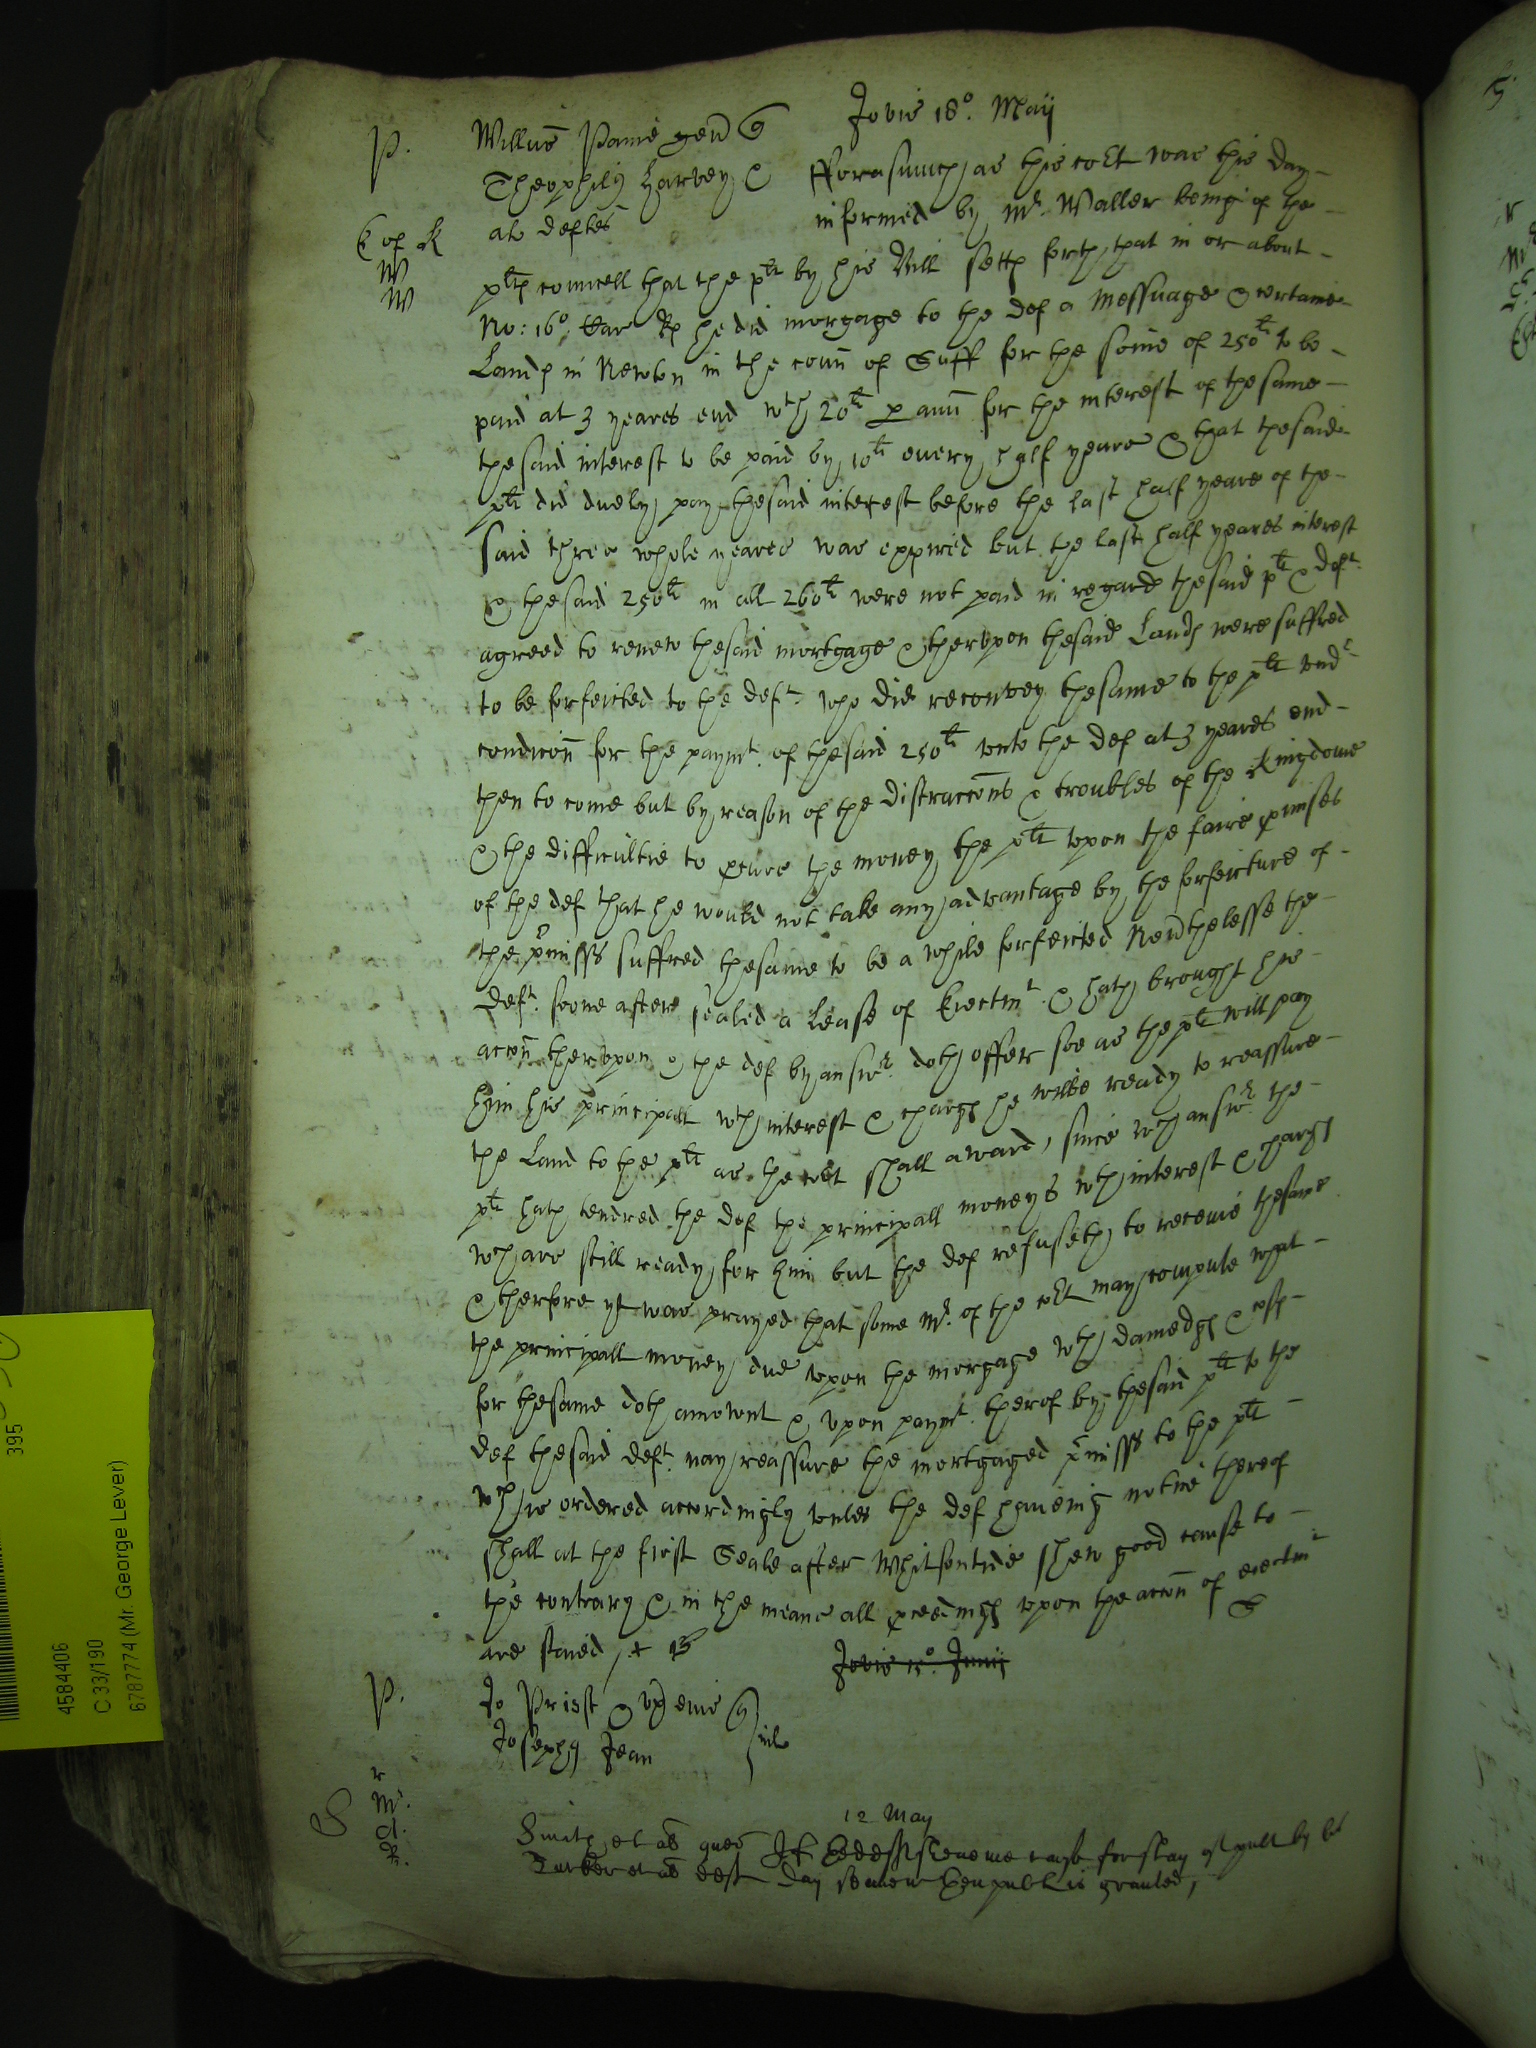 Jovis 18o. Maij
P.
Willus Payne gen
Theophilus Harvey &
als deftes
fforasmuch as this cort was this day
informed by Mr. Waller being of the
C of K
W
W
pltes councell that the plt by his Bill setts forth that in or about
No: 16o. Car Rs he did morgage to the def a Messuage & certaine
Lands in Newton in the coun of Suff for the some of 250li to be
paid at 3 yeares end wth 20li p ann for the interest of thesame
thesaid interest to be paid by 10li euery half yeare & that thesaid
plt did duely pay thesaid interest before the last half yeare of the
said three whole yeares was expired but the last half yeares interest
& thesaid 250li in all 260li were not paid in regard thesaid plt & deft
agreed to renew thesaid mortgage & therupon thesaid Lands were suffred
to be forfeited to the deft. who did reconvey thesame to the plt undr
condicon for the paymt. of thesaid 250li unto the def at 3 yeares end
then to come but by reason of the distraccons & troubles of the Kingdome
& the difficultie to pcure the money the plt upon the faire pmises
of the def that he would not take any advantage by the forfeicture of
the pmisses suffred thesame to be a while forfeited Nevthelesse the
deft. soone after sealed a Lease of Eiectmt. & hath brought his
accon therupon & the def by answr. doth offer soe as the plt will pay
him his principall wth interest & charges he wilbe ready to reassure
the Land to the plt as the cort shall award, since wch answr the
plt hath tendred the def the principall moneys wth interest & charges
wch are still ready for him but the def refuseth to receive thesame
& therfore yt was prayed that some Mr. of the cort may compute what
the principall money due upon the morgage wth damedges & costs
for thesame doth amount & upon paymt. therof by thesaid plt to the
def thesaid deft. may reassure the mortgaged pmisses to the plt
wch is ordered accordingly unles the def haveing notice thereof
shall at the first Seale after Whitsontide shew good cause to
the contrary & in the meane all pceedings upon the accon of eiectmt
are staied
S
Jovis 15o. Junij
P.
Jo Priest & ux eius
Josephus Jean
r
Mr.
d.
R.
S
12 May
Smith et al quer If shewe me cause for stay of publ by
Tucker et al def day sennet then publ is granted,
4584406
C 33/190
6787774 (Mr. George Lever)
395